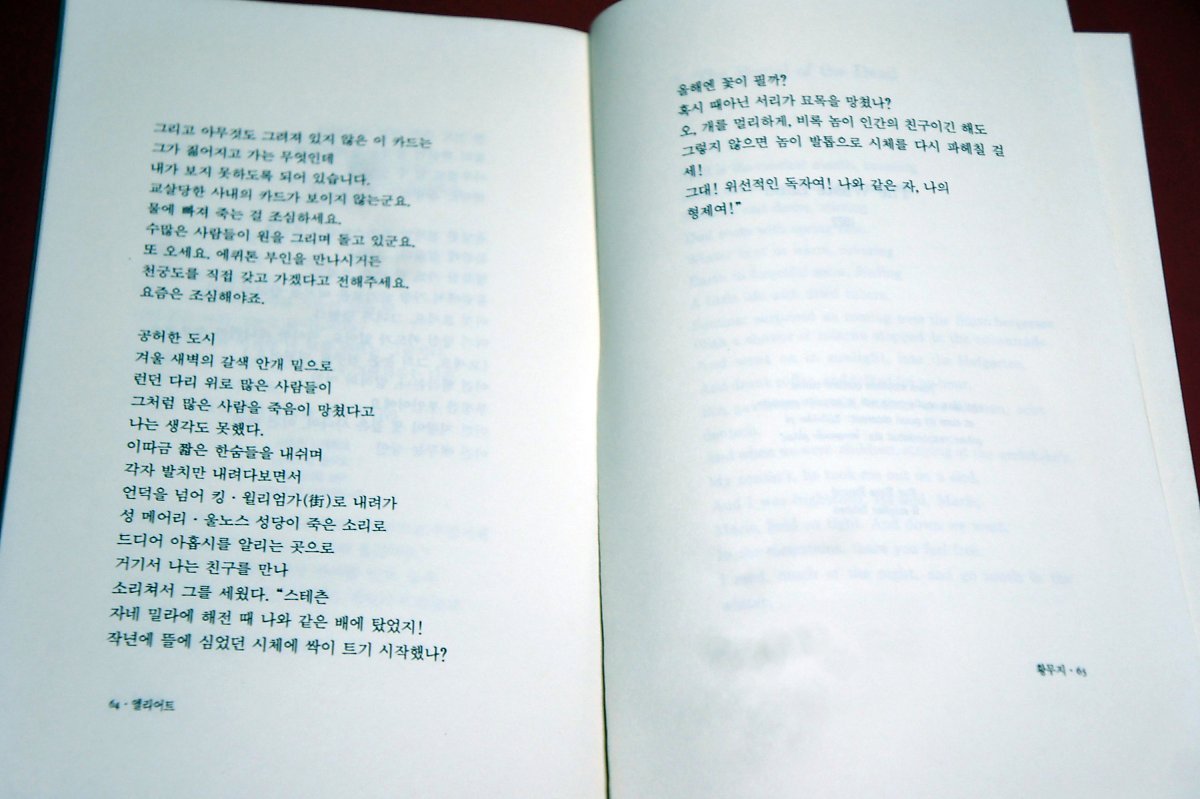 그리고 아무것도 그려져 있지 않은 이 카드는
그가 짊어지고 가는 무엇인데
내가 보지 못하도록 되어 있습니다.
교살당한 사내의 카드가 보이지 않는군요.
물에 빠져 죽는 걸 조심하세요.
수많은 사람들이 원을 그리며 돌고 있군요.
또 오세요. 에퀴톤 부인을 만나시거든
천궁도를 직접 갖고 가겠다고 전해주세요.
요즘은 조심해야죠.
공허한 도시
겨울 새벽의 갈색 안개 밑으로
런던 다리 위로 많은 사람들이
그처럼 많은 사람을 죽음이 망쳤다고
나는 생각도 못했다.
이따금 짧은 한숨들을 내쉬며
각자 발치만 내려다보면서
언덕을 넘어 킹·윌리엄가(街)로 내려가
성 메어리·울노스 성당이 죽은 소리로
드디어 아홉시를 알리는 곳으로
거기서 나는 친구를 만나
소리쳐서 그를 세웠다. “스테츤
자네 밀라에 해전 때 나와 같은 배에 탔었지!
작년에 뜰에 심었던 시체에 싹이 트기 시작했나?
64·엘리어트
올해엔 꽃이 필까?
혹시 때아닌 서리가 묘목을 망쳤나?
오, 개를 멀리하게, 비록 놈이 인간의 친구이긴 해도
그렇지 않으면 놈이 발톱으로 시체를 다시 파헤칠 걸
세!
그대! 위선적인 독자여! 나와 같은 자, 나의
형제여!”
황무지·65